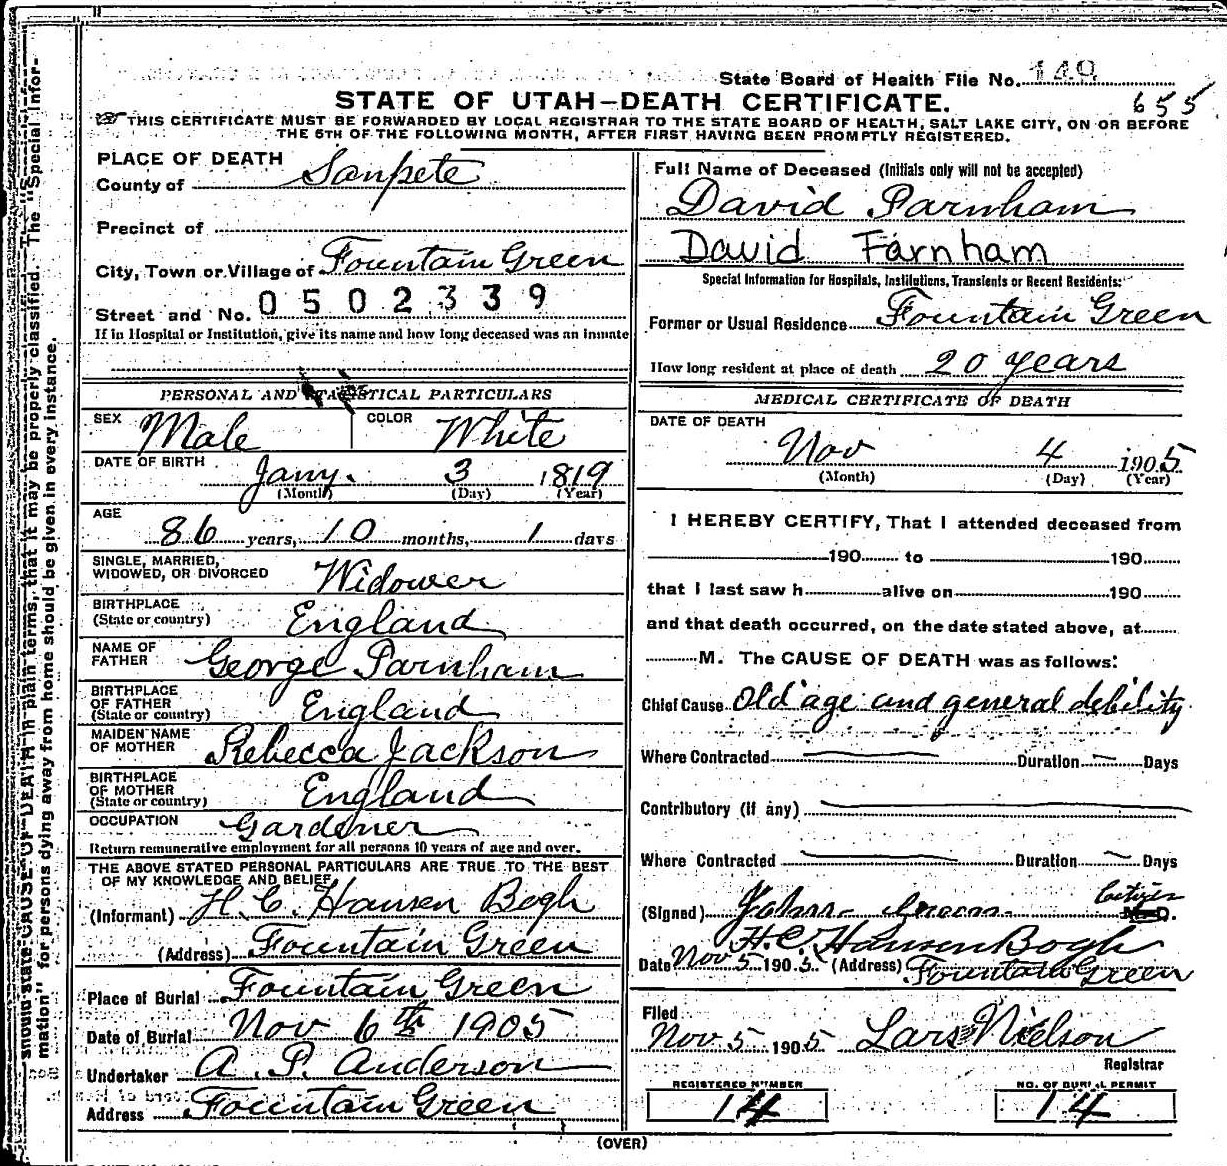 State Board of Health File No. 149
STATE OF UTAH—DEATH CERTIFICATE.
655
THIS CERTIFICATE MUST BE FORWARDED BY LOCAL REGISTRAR TO THE STATE BOARD OF HEALTH, SALT LAKE CITY, ON OR BEFORE
THE 5TH OF THE FOLLOWING MONTH, AFTER FIRST HAVING BEEN PROMPTLY REGISTERED.
PLACE OF DEATH
County of Sanpete
Precinct of
City, Town or Village of Fountain Green
Street and No. 0502339
If in Hospital or Institution, give its name and how long deceased was an inmate
PERSONAL AND STATISTICAL PARTICULARS
SEX Male COLOR White
DATE OF BIRTH Jany. 3 1819
(Month) (Day) (Year)
AGE
86 years, 10 months, 1 days
SINGLE, MARRIED,
WIDOWED, OR DIVORCED Widower
BIRTHPLACE
(State or country) England
NAME OF
FATHER George Parnham
BIRTHPLACE
OF FATHER
(State or country) England
MAIDEN NAME
OF MOTHER Rebecca Jackson
BIRTHPLACE
OF MOTHER
(State or country) England
OCCUPATION Gardener
Return remunerative employment for all persons 10 years of age and over.
THE ABOVE STATED PERSONAL PARTICULARS ARE TRUE TO THE BEST
OF MY KNOWLEDGE AND BELIEF
(Informant) H. C. Hansen Bogh
(Address) Fountain Green
Place of Burial Fountain Green
Date of Burial Nov 6th 1905
Undertaker A. P. Anderson
Address Fountain Green
Full Name of Deceased (Initials only will not be accepted)
David Parnham
David Farnham
Special Information for Hospitals, Institutions, Transients or Recent Residents:
Former or Usual Residence Fountain Green
How long resident at place of death 20 years
MEDICAL CERTIFICATE OF DEATH
DATE OF DEATH
Nov 4 1905
(Month) (Day) (Year)
I HEREBY CERTIFY, That I attended deceased from
190 to 190
that I last saw h alive on 190
and that death occurred, on the date stated above, at
M. The CAUSE OF DEATH was as follows:
Chief Cause Old age and general debility
Where Contracted Duration Days
Contributory (if any)
Where Contracted Duration Days
Citizen
(Signed) John M.D.
H. C. Hansen Bogh
Date Nov 5 1905 (Address) Fountain Green
Filed
Nov 5 1905 Lars Nielson
Registrar
REGISTERED NUMBER
14
NO. OF BURIAL PERMIT
14
(OVER)
should state CAUSE OF DEATH in plain terms, that it may be properly classified. The "Special Infor-
mation" for persons dying away from home should be given in every instance.